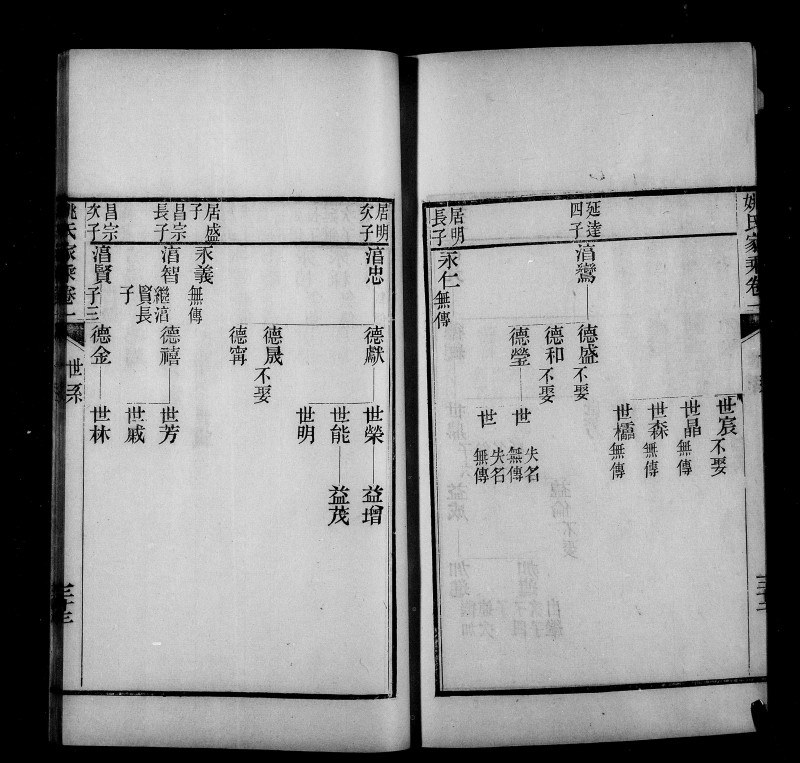 世宸不娶
世晶無傳
世森無傳
世櫺無傳
延達四子
湻鸞
德盛不娶
德和不娶
德瑩
世失名無傳
世失名無傳
居明長子
永仁無傳
居明次子
湻忠
德獻
世榮
益增
世能
益茂
世明
德晟不娶
德甯
居盛子
永義無傳
昌宗長子
湻智繼湻賢長子
德禧
世芳
世戚
昌宗次子
湻賢子三
德金
世林
姚氏家乘卷一
世系
三十三